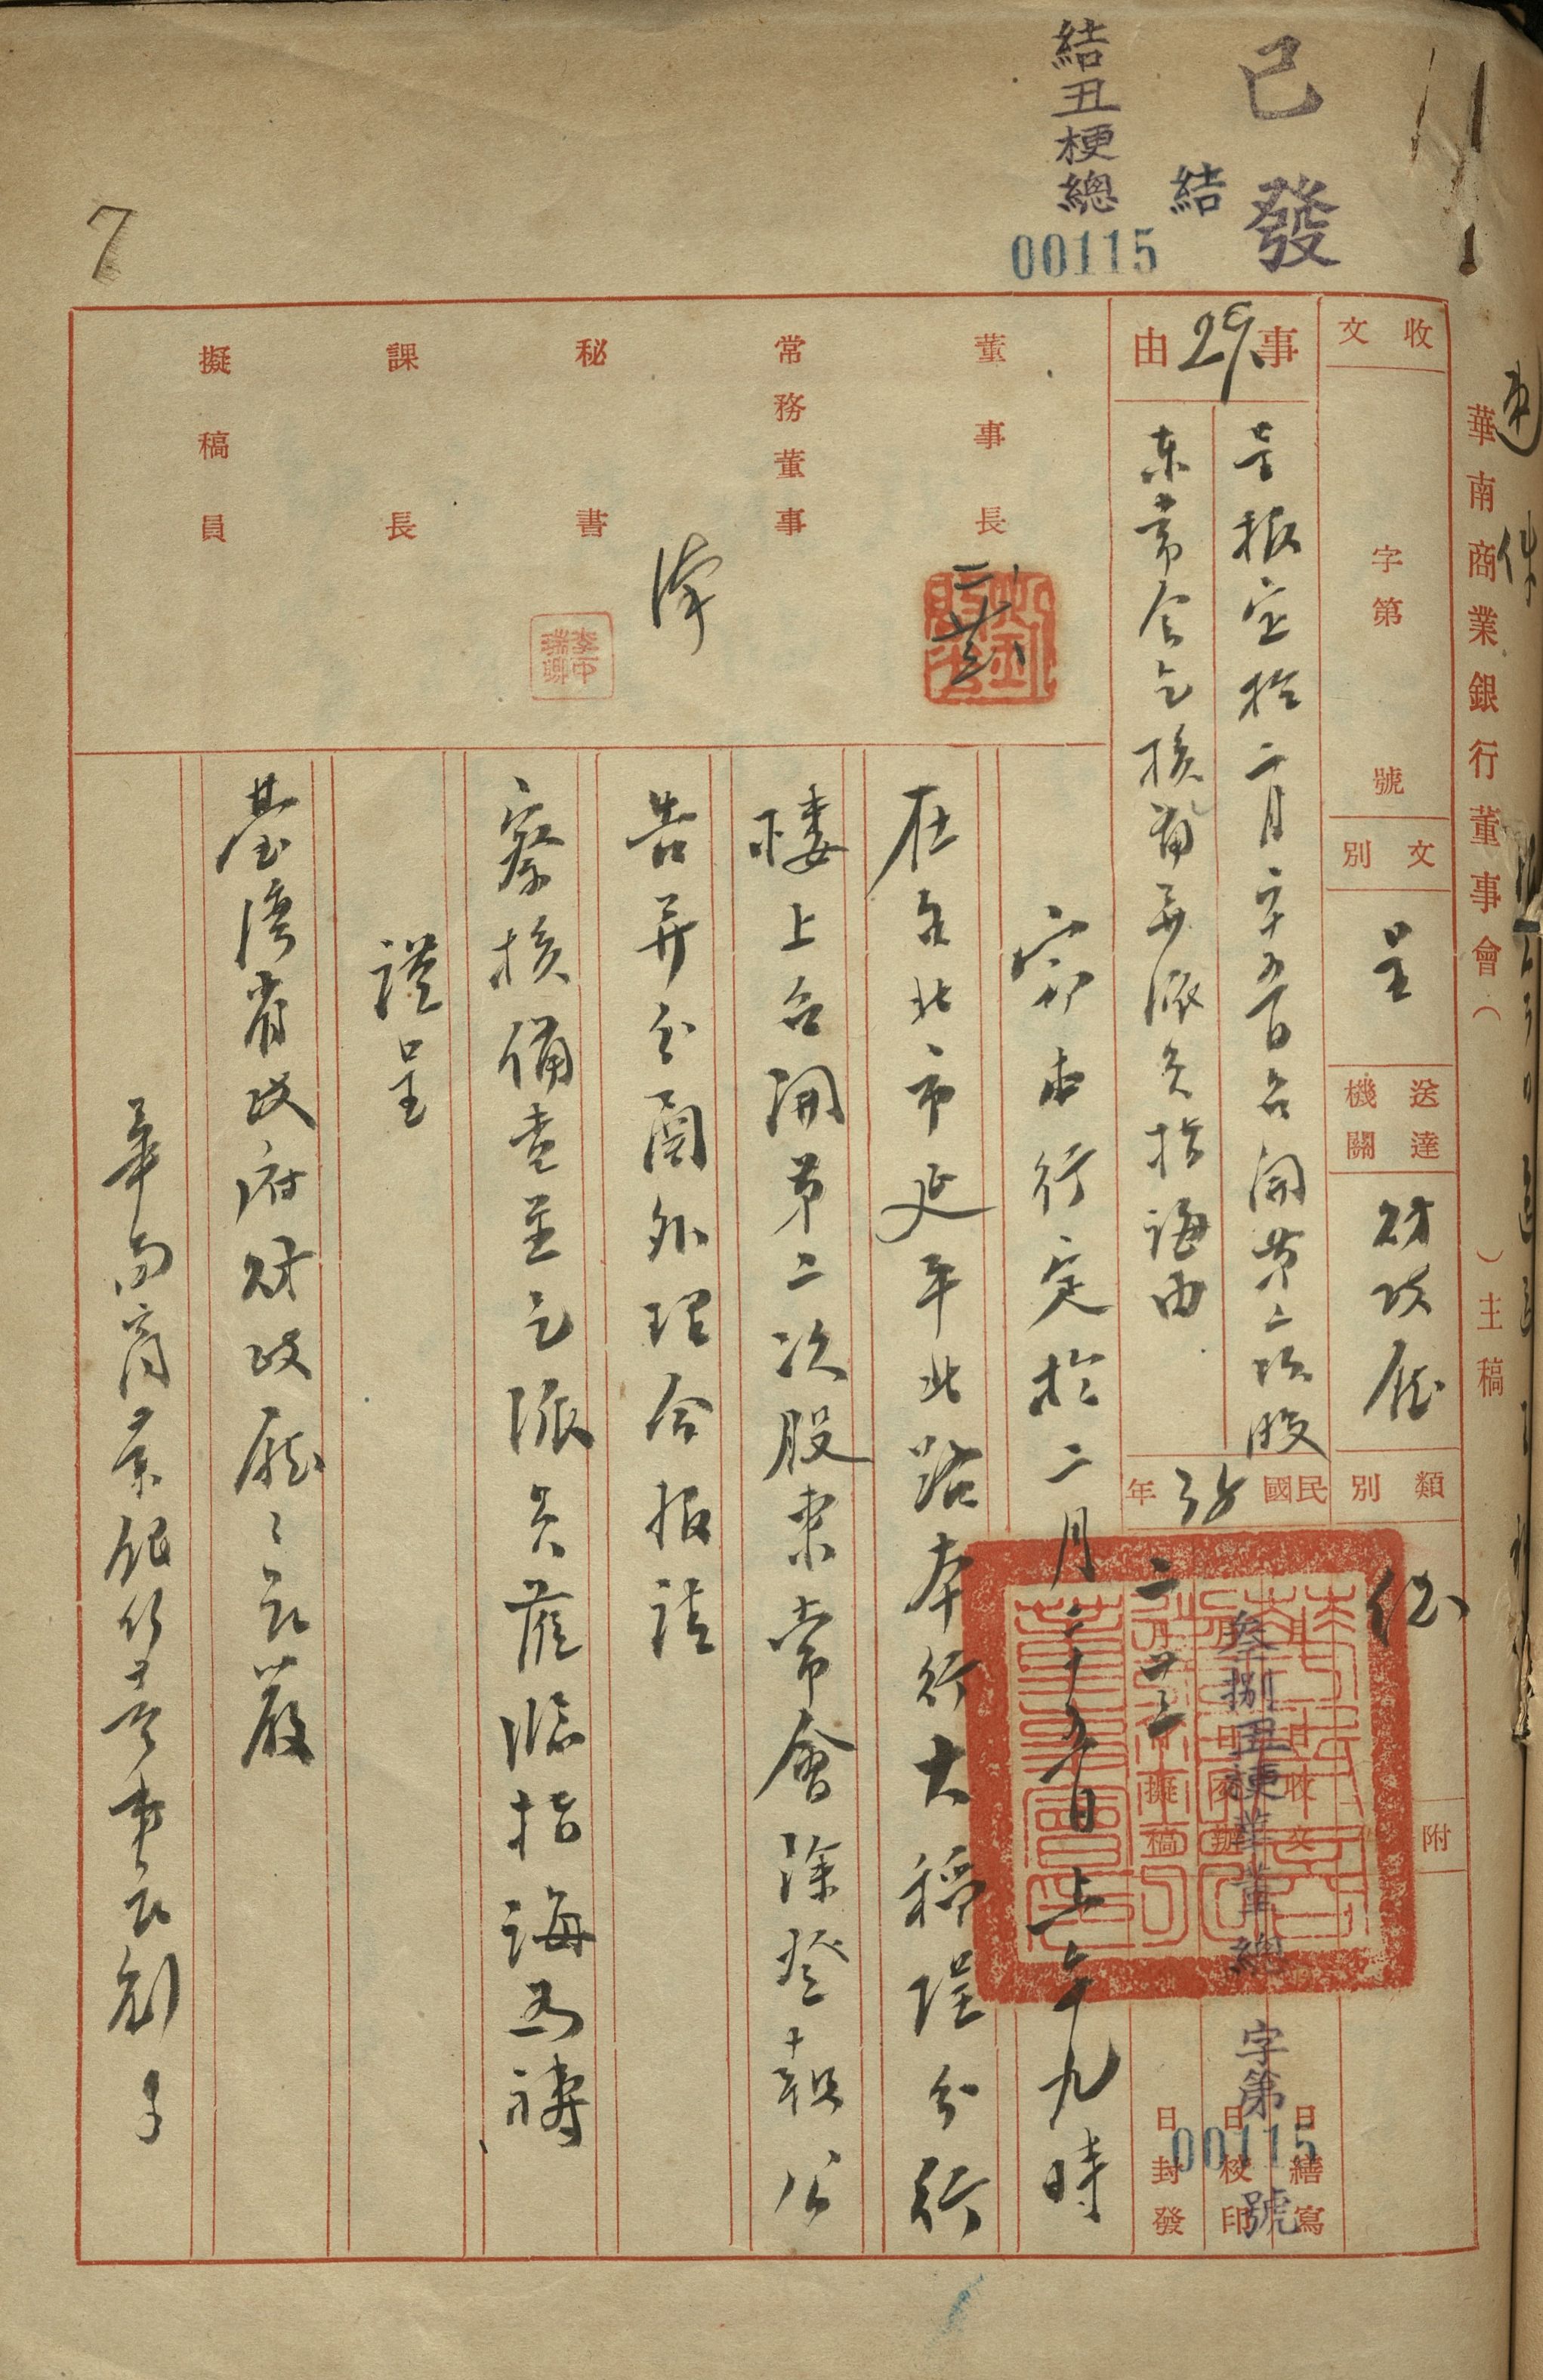 已發
結
結丑梗總
00115
7
華南商業銀行董事會（　　）主稿
收文
字第　號
文別
呈
送達機關
財政廳
類別
附
事由
29
呈報定於二月二十五日召開第二次股
東常會乞核備並派員指誨由
民國38年
二
月
日收文
日交辦
擬稿
日繕寫
日校印
日封發
叁捌丑梗華董總字第00115號
董事長
常務董事
秘書
課長
擬稿員
竊本行定於二月二十五日上午九時
在台北市延平北路本行大稻埕分行
樓上召開第二次股東常會除登報公
告并分函外理合報請
察核備查並乞派員蒞臨指誨為禱
謹呈
臺灣省政府財政廳廳長嚴
華南商業銀行董事長劉